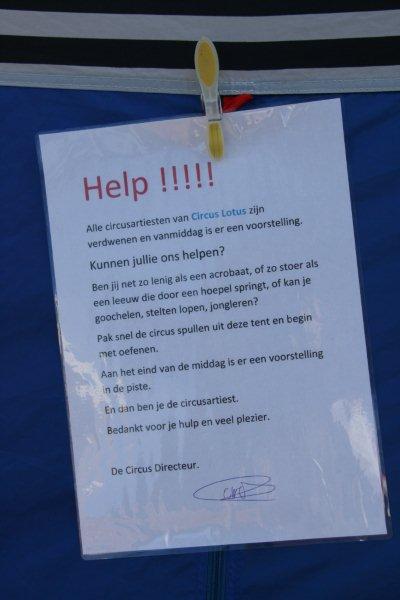 Help !!!!!
Alle circusartiesten van Circus Lotus zijn
verdwenen en vanmiddag is er een voorstelling.
Kunnen jullie ons helpen?
Ben jij net zo lenig als een acrobaat, of zo stoer als
een leeuw die door een hoepel springt, of kan je
goochelen, stelten lopen, jongleren?
Pak snel de circus spullen uit deze tent en begin
met oefenen.
Aan het eind van de middag is er een voorstelling
in de piste.
En dan ben je de circusartiest.
Bedankt voor je hulp en veel plezier.
De Circus Directeur.